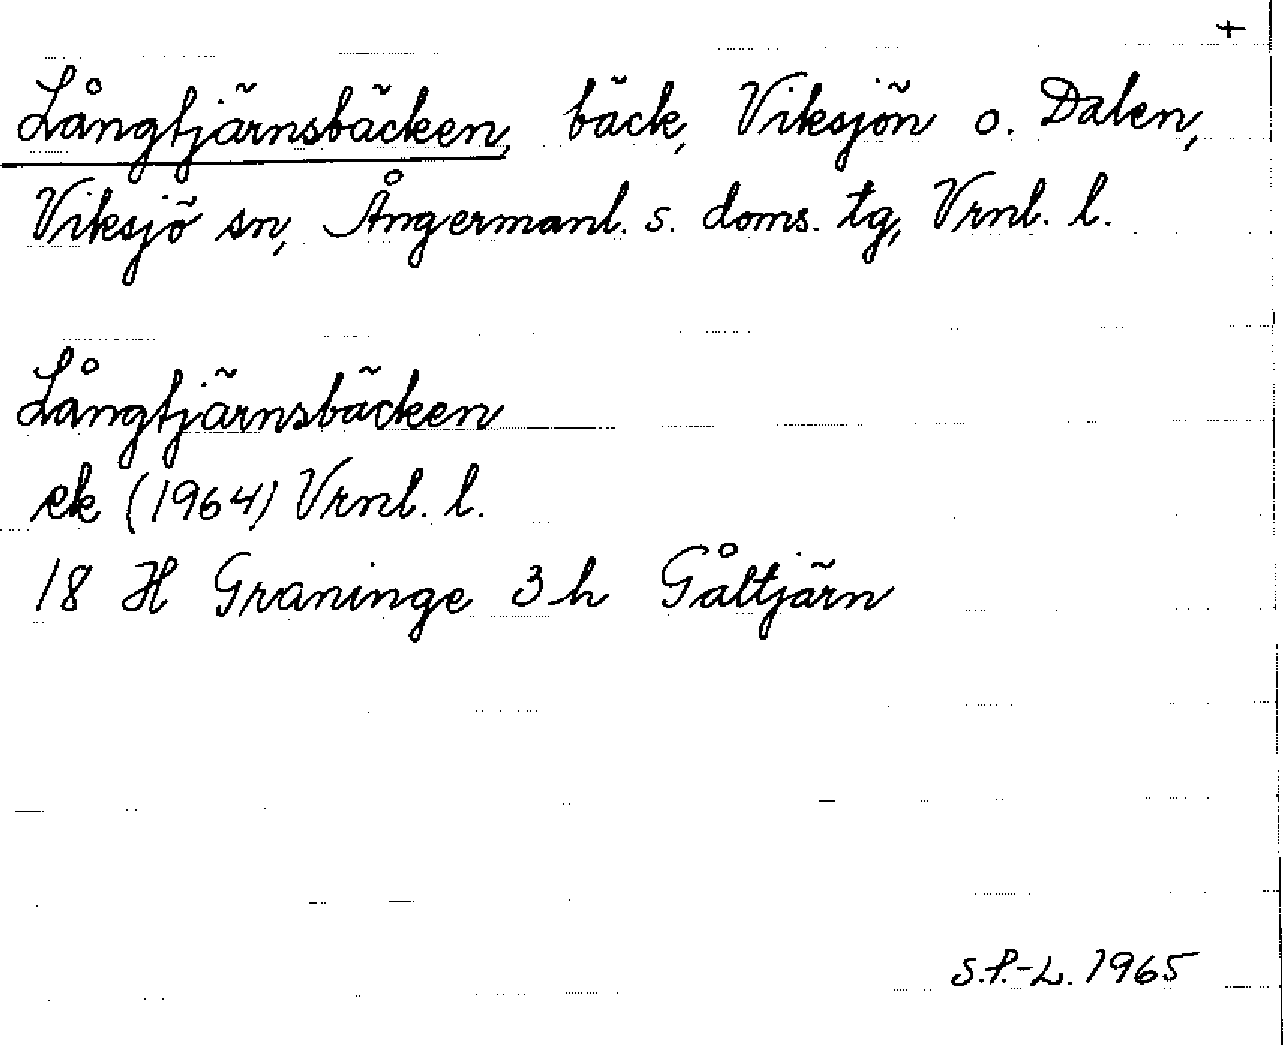 Långtjärnsbäcken, bäck, Viksjön o. Dalen,
Viksjö sn, Ångermanl. s. doms. tg, Vrnl. l.
Långtjärnsbäcken
ek (1964) Vrnl. l.
18 H Graninge 3 h Gåltjärn
S.P.-L. 1965